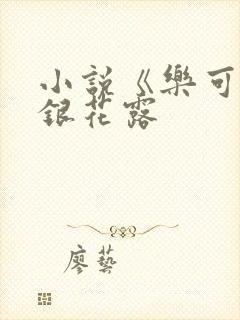 小説《樂可
銀花露
廖藝